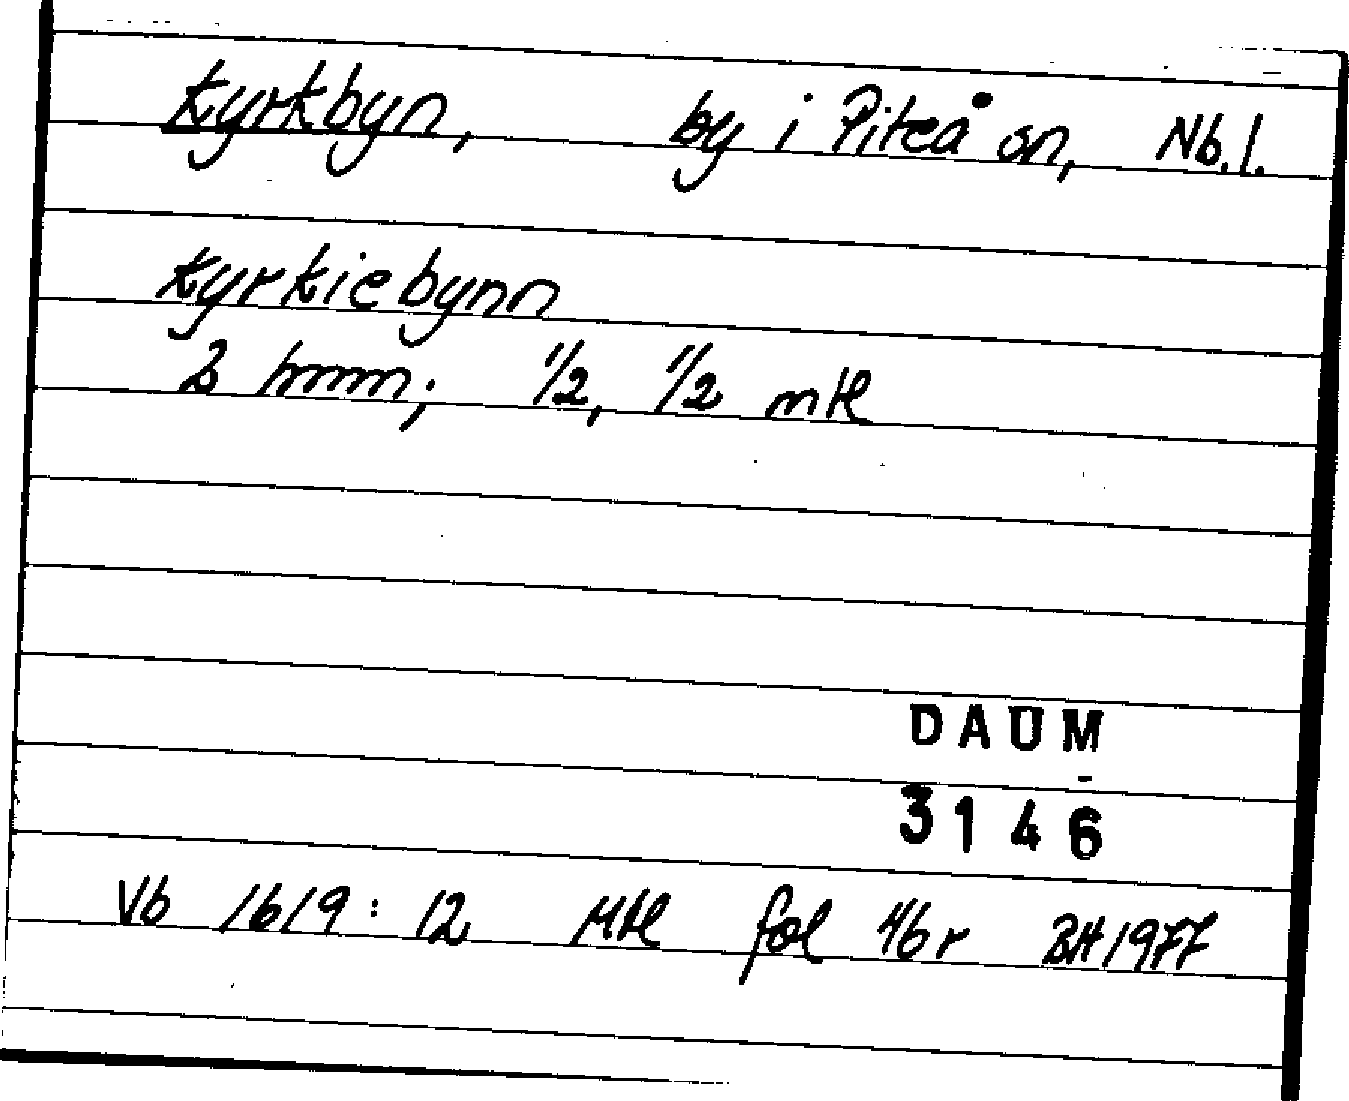 Kyrkbyn, by i Piteå sn, Nb.l.
Kyrkiebynn
2 hmm; 1/2, 1/2 mtl
DAUM
3146
Vb 1619:12 Mtl fol 46r BH 1977